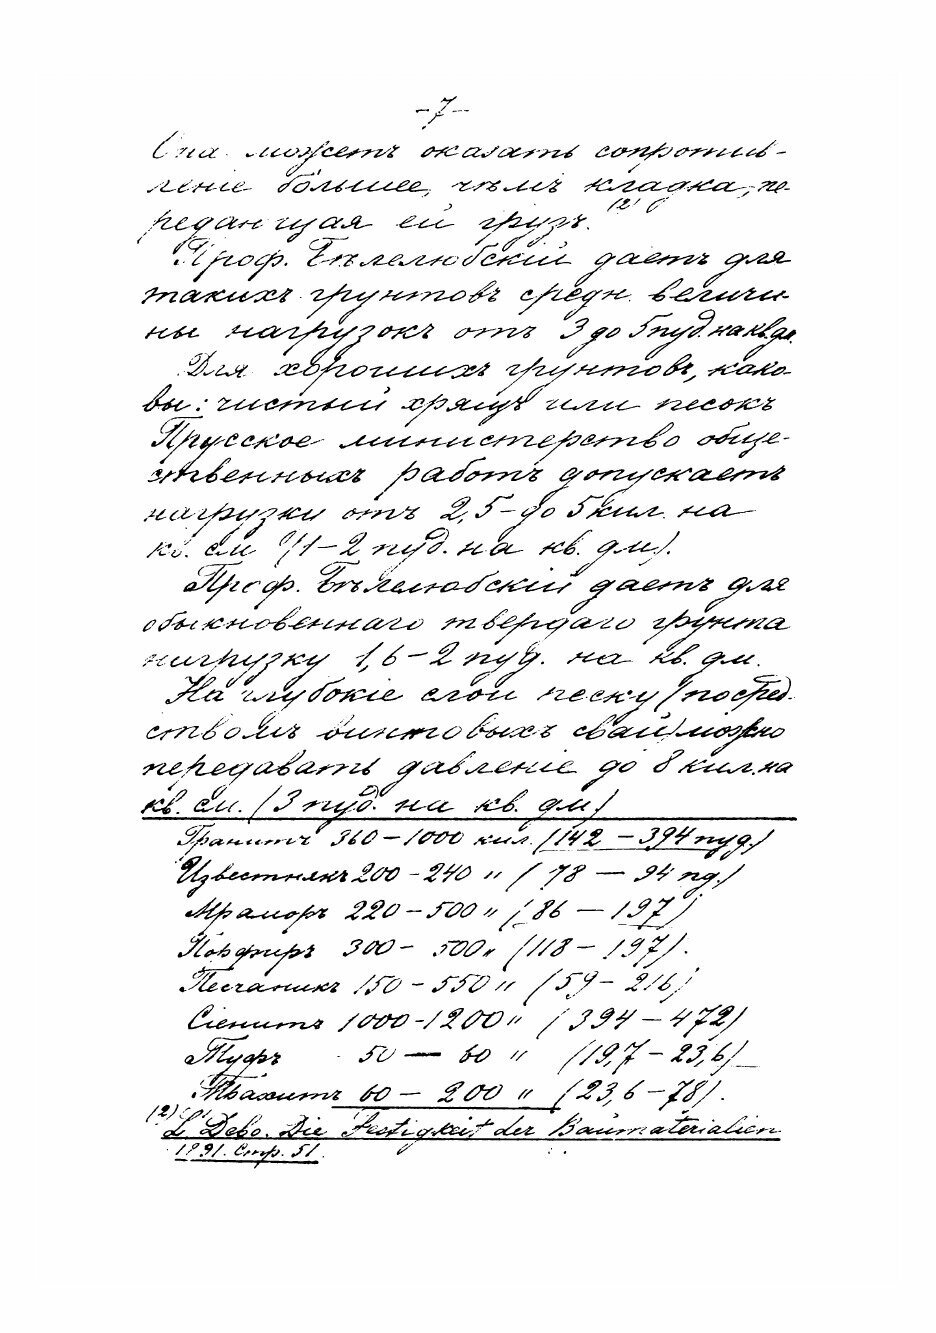 -7-
Она можетъ оказать сопротив-
леніе большее, чѣмъ кладка, пе-
редающая ей грузъ. (2)
Проф. Бѣлелюбскій даетъ для
такихъ грунтовъ средн. величи-
ны нагрузокъ отъ 3 до 5 пуд. на кв. дм.
Для хорошихъ грунтовъ, како-
вы: чистый хрящъ или песокъ
Прусское министерство обще-
ственныхъ работъ допускаетъ
нагрузки отъ 2,5-до 5 кил. на
кв. см (1-2 пуд. на кв. дм).
Проф. Бѣлелюбскій даетъ для
обыкновеннаго твердаго грунта
нагрузку 1,6-2 пуд. на кв. дм.
На глубокіе слои песку (посред-
ствомъ винтовыхъ свай) можно
передавать давленіе до 8 кил. на
кв. см. (3 пуд. на кв. дм)
Гранитъ 360-1000 кил. (142-394 пуд.)
Известнякъ 200-240 " (78-94 пд.)
Мраморъ 220-500 " (86-197)
Порфиръ 300-500 " (118-197).
Песчаникъ 150-550 " (59-216)
Сіенитъ 1000-1200 " (394-472)
Туфъ 50-60 " (19,7-23,6)
Трахитъ 60-200 " (23,6-78).
(2) L. Debo. Die Festigkeit der Baumaterialien
Стр. 51.